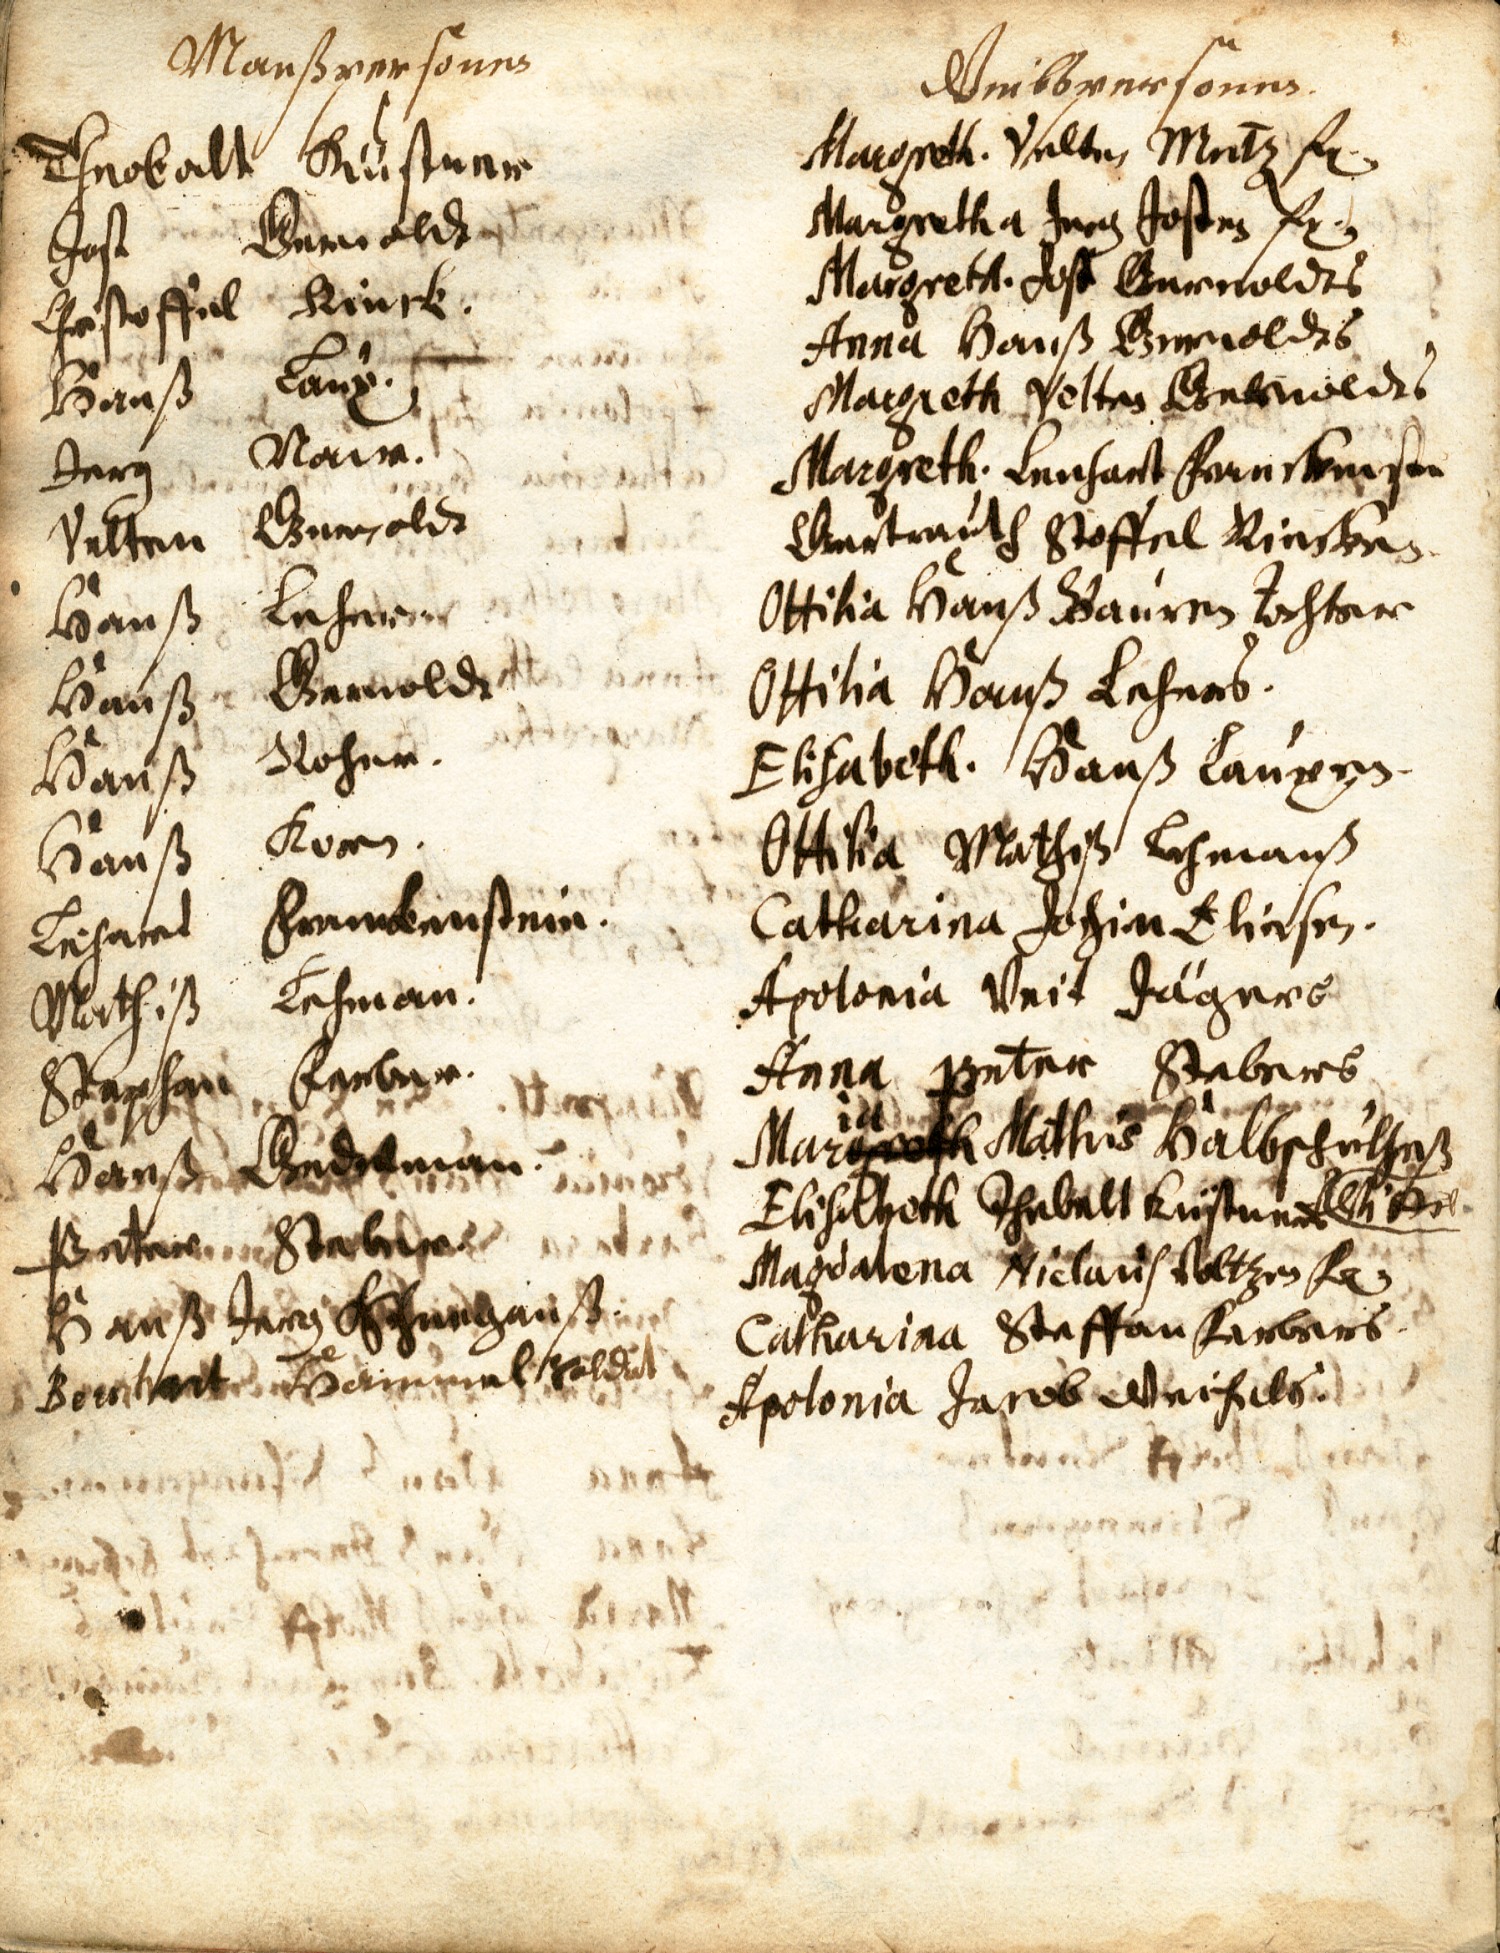 Manßpersonen
Theobalt Küstner
Jost Gernoldt
Christoffel Rinck.
Hanß Laux.
Jerg
Velten Gernoldt
Hanß Lehner
Hanß Gernoldt
Hanß Roher.
Hanß Korn.
Lehnard Franckenstein.
Mathiß Lehman.
Stephan Ferber.
Hanß Gedelman.
Peter Steber.
Hanß Jerg Schneganß.
Bernhart Hammel Soldat
Weibspersonen.
Margreth. Velten Metz fr.
Margretha Jerg Josten fr.
Margreth. Jost Gernoldts
Anna Hanß Gernoldts
Margreth Velten Gernoldts
Margreth. Lenhart Franckenstein
Gertrauth Stoffel Rincken.
Ottilia Hanß Bauren Tochter
Ottilia Hanß Lehners.
Elisabeth. Hanß Lauxen.
Ottilia Mathiß Lehmanß
Catharina Jochim Eliesen.
Apolonia Veit Jägers
Anna Peter Stebers
Maria Mathis Halbschultheß
Elisabeth Thebalt Küstners
Magdalena Niclaus fr.
Catharina Steffan Ferbers.
Apolonia Jacob Weihels.